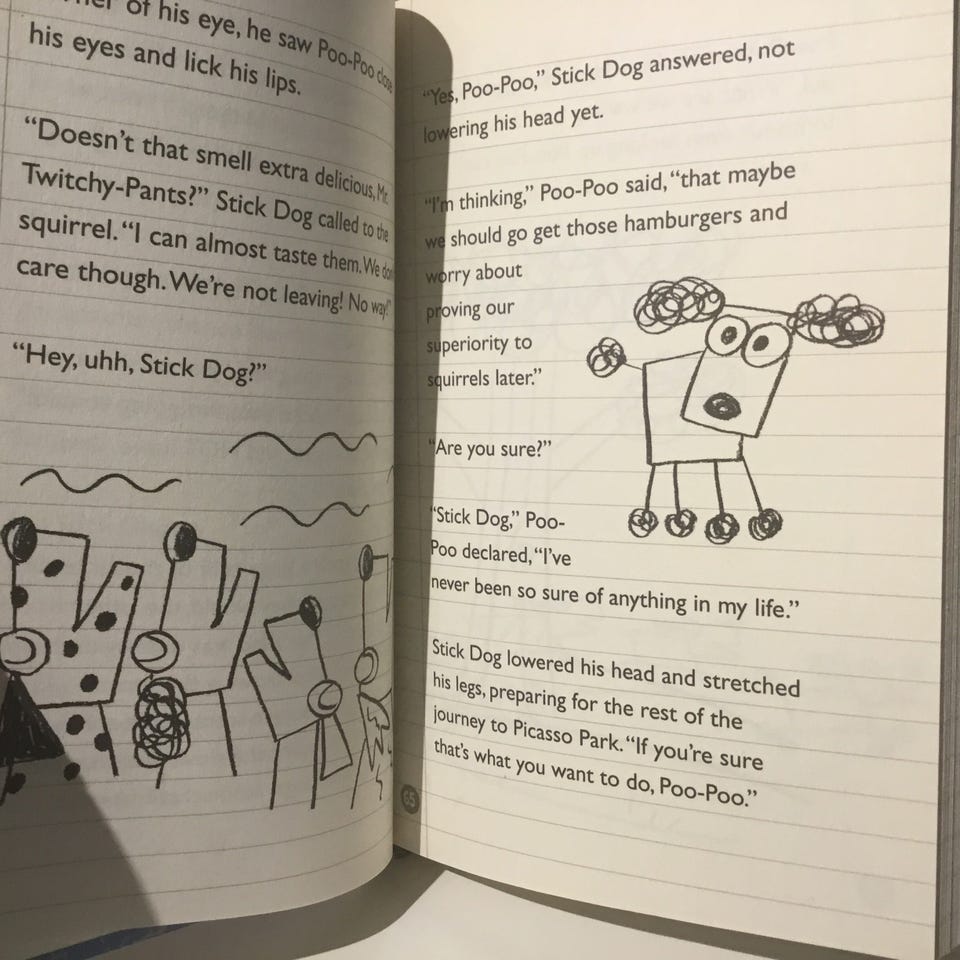 of his eye, he saw Poo-Poo close
his eyes and lick his lips.
“Doesn’t that smell extra delicious, Mr.
Twitchy-Pants?” Stick Dog called to the
squirrel. “I can almost taste them. We don’t
care though. We’re not leaving! No way!”
“Hey, uhh, Stick Dog?”
“Yes, Poo-Poo,” Stick Dog answered, not
lowering his head yet.
“I’m thinking,” Poo-Poo said, “that maybe
we should go get those hamburgers and
worry about
proving our
superiority to
squirrels later.”
“Are you sure?”
“Stick Dog,” Poo-
Poo declared, “I’ve
never been so sure of anything in my life.”
Stick Dog lowered his head and stretched
his legs, preparing for the rest of the
journey to Picasso Park. “If you’re sure
that’s what you want to do, Poo-Poo.”
65